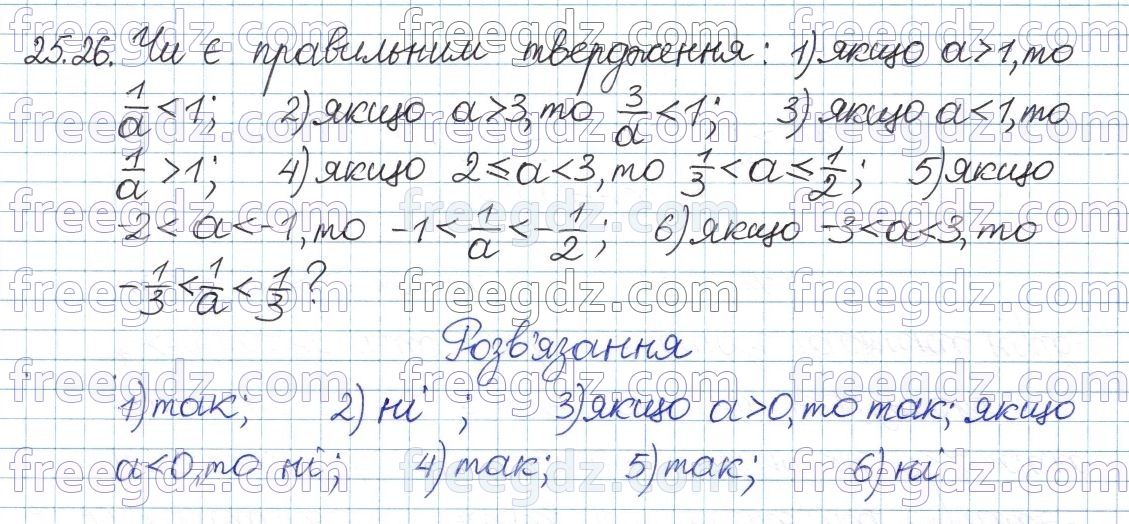 25.26. Чи є правильним твердження: 1) якщо a>1, то
1/a<1; 2) якщо a>3, то 3/a<1; 3) якщо a<1, то
1/a>1; 4) якщо 2≤a<3, то 1/3<a≤1/2; 5) якщо
-2<a<-1, то -1<1/a<-1/2; 6) якщо -3<a<3, то
-1/3<1/a<1/3?
Розв'язання
1) так; 2) ні; 3) якщо a>0, то так; якщо
a<0, то ні; 4) так; 5) так; 6) ні
freegdz.com